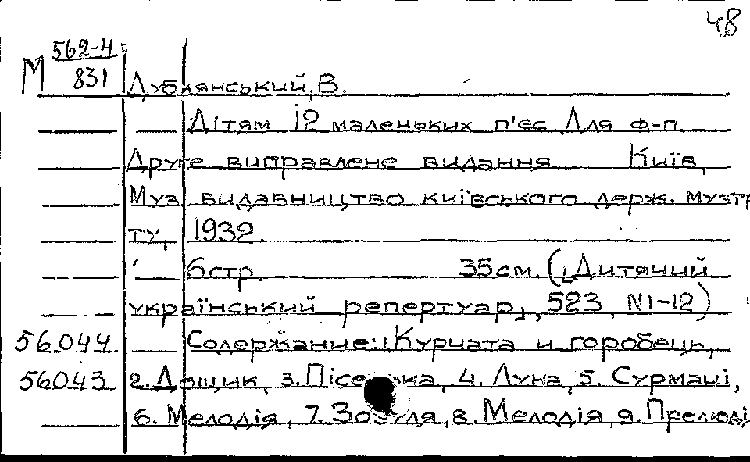 48
М 562-4
831
Дубкянський, В.
Дітям 12 маленьких п'єс Для ф-п
Друге виправлене видання Київ,
Муз видавництво київського держ. музтр
ту, 1932
6 стр. 35 см. („Дитячий
український репертуар„, 523, N1-12)
56044 Содержание: 1. Курчата и горобець,
56043 2. Дощик, 3. Пісенька, 4. Луна, 5. Сурмачі,
6. Мелодія, 7. Зозуля, 8. Мелодія 9. Прелюді